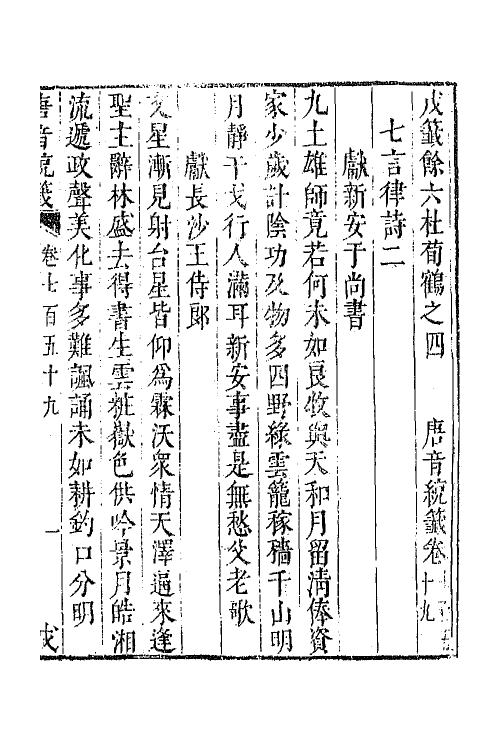 戊籖餘六杜荀鶴之四　唐音統籖卷　十九
七言律詩二
獻新安于尚書
九土雄師竟若何未如良牧與天和月留清俸資
家少歲計陰功及物多四野綠雲籠稼穡千山明
月靜干戈行人滿耳新安事盡是無愁父老歌
獻長沙王侍郎
文星漸見射台星皆仰為霖沃衆情天澤逼來逢
聖主辭林盛去得書生雲粧嶽色供吟景月皓湘
流遞政聲美化事多難諷誦未如耕釣口分明
唐音統籖　卷七百五十九　一　戊